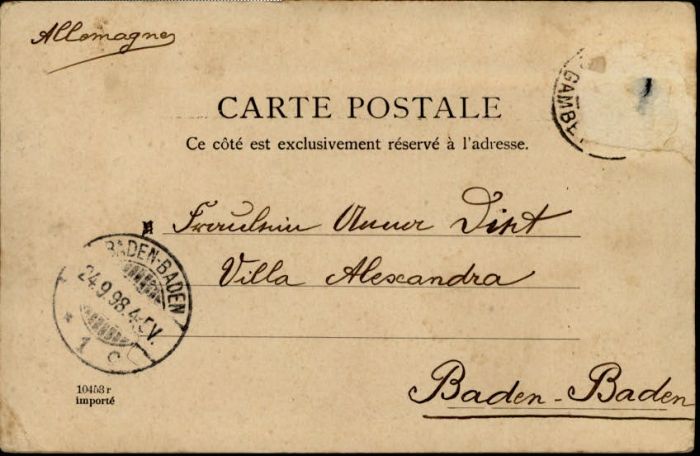 Allemagne
GAMBE
CARTE POSTALE
Ce côté est exclusivement réservé à l'adresse.
Fräulein Anna Dist
Villa Alexandra
BADEN-BADEN
24.9.98.4-5V.
* 1 c
Baden-Baden
10453 r
importé